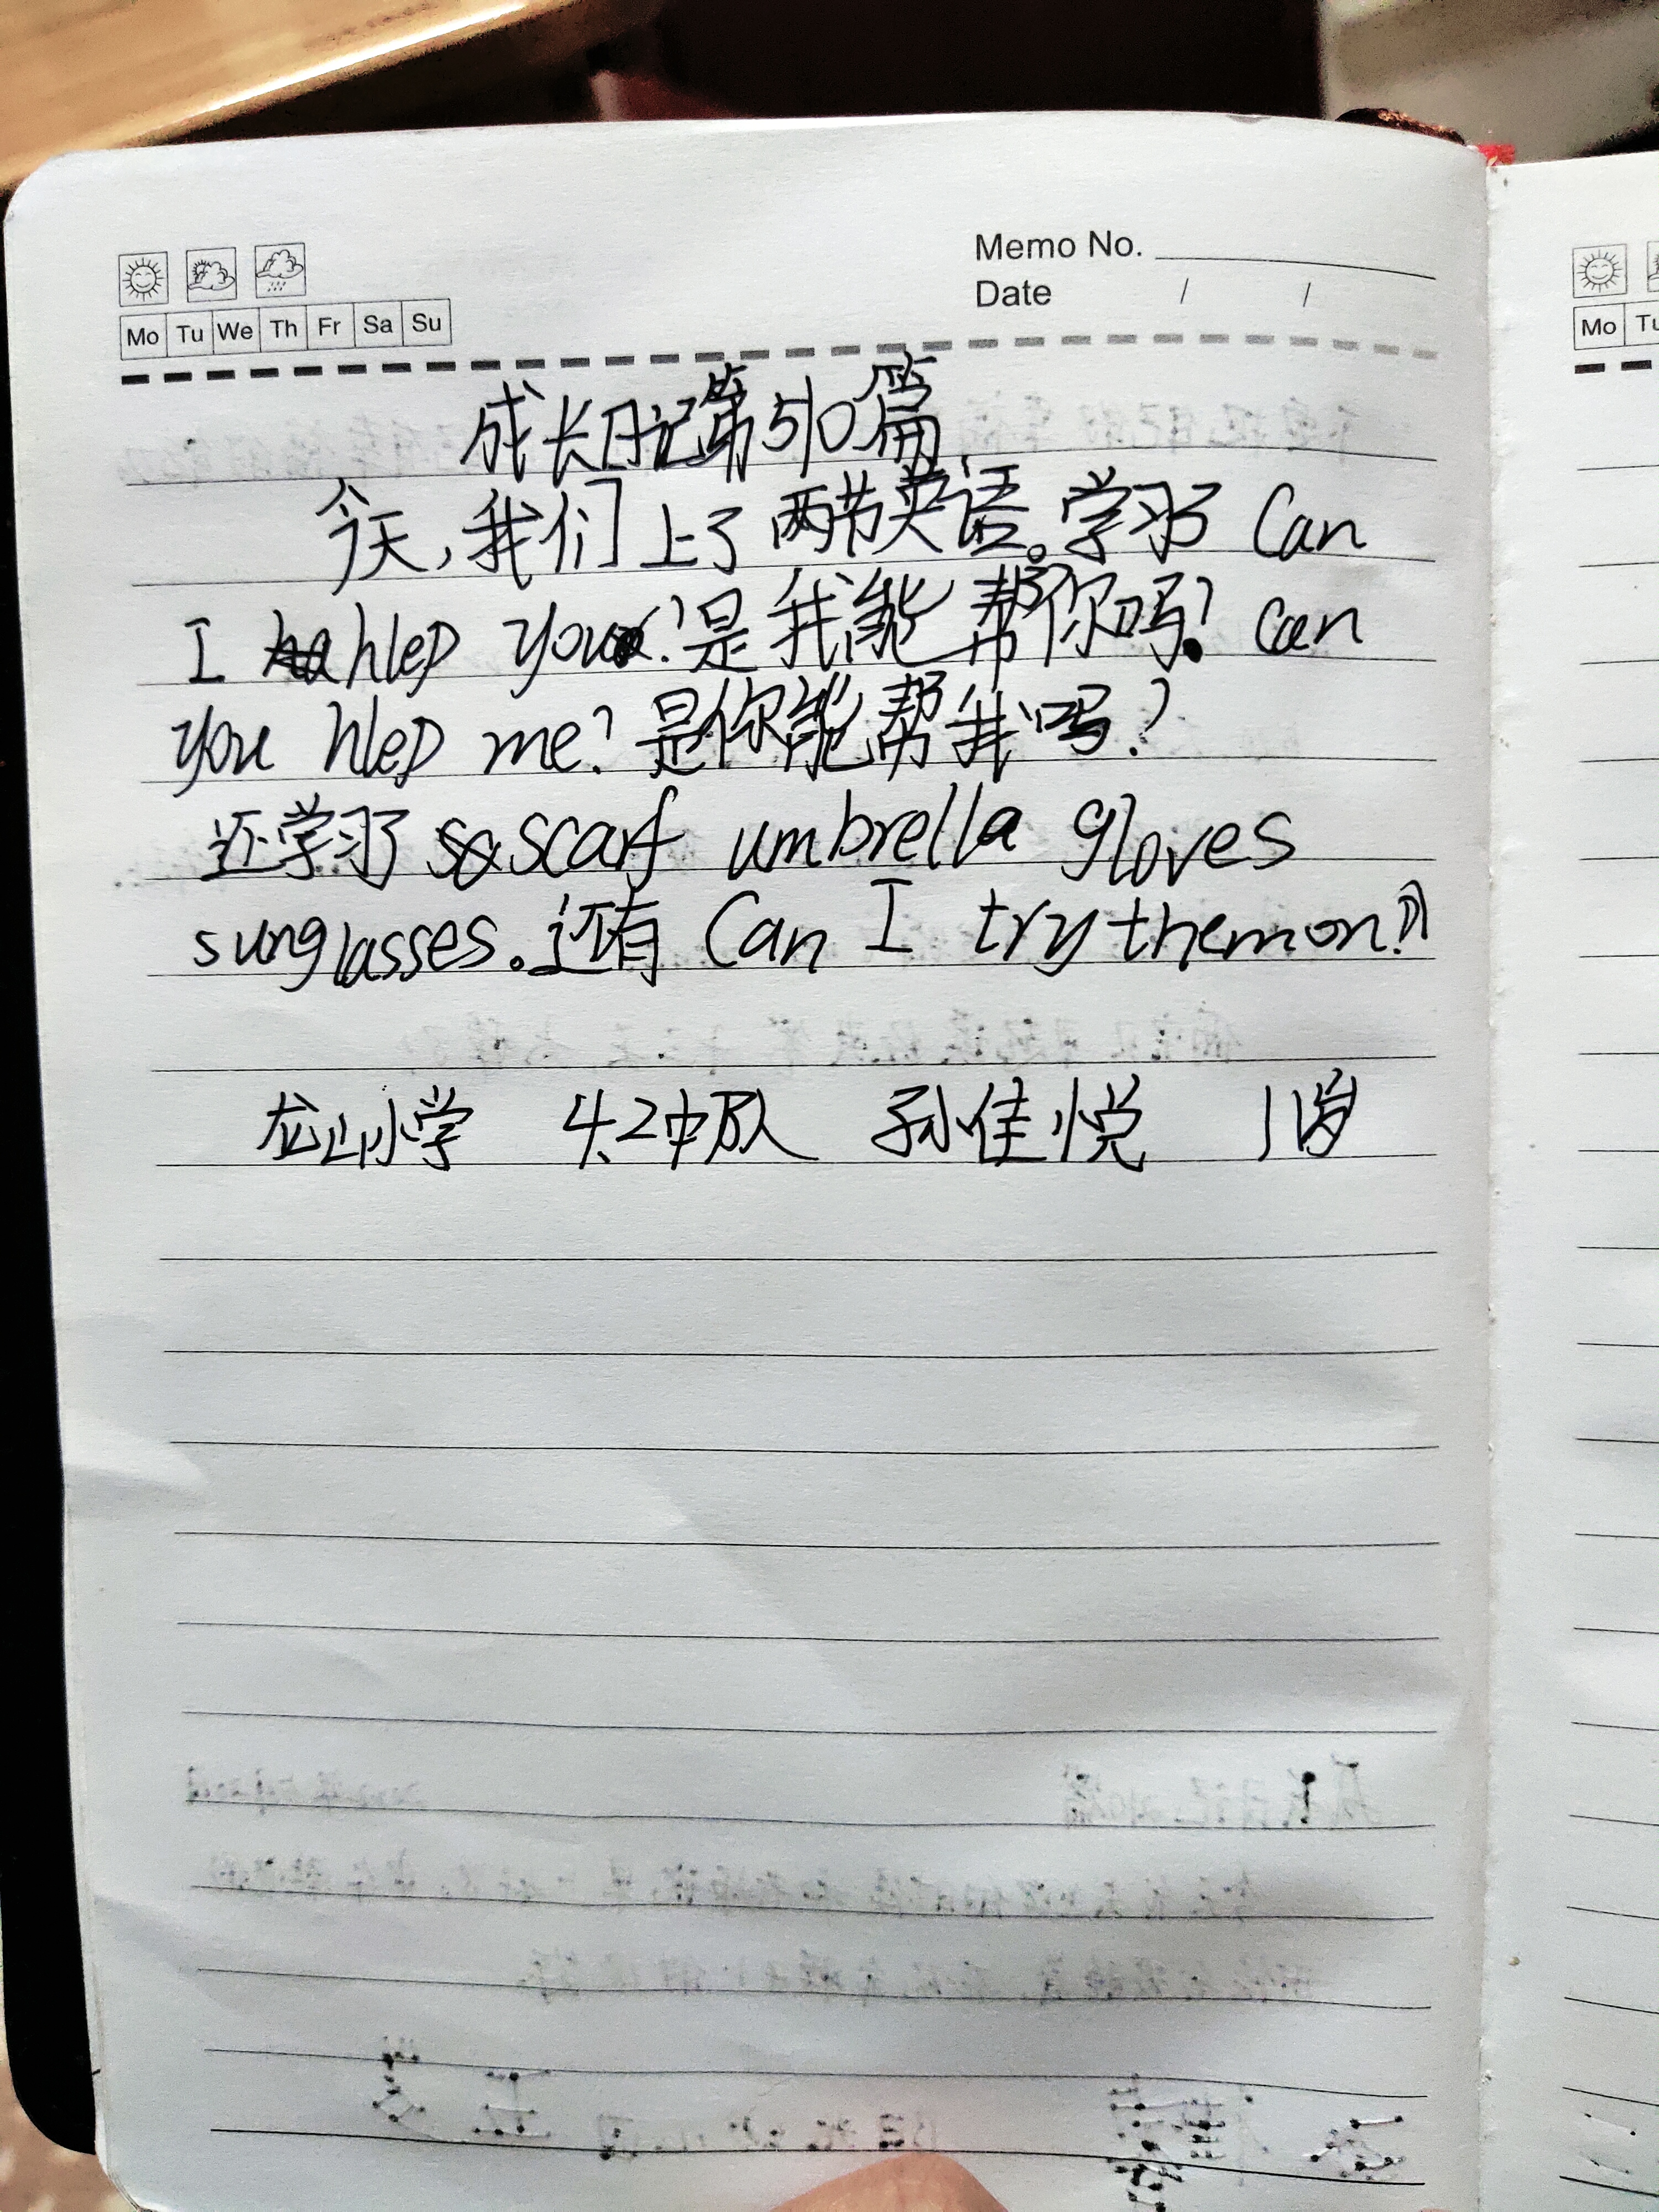 Memo No.
Date / /
Mo Tu We Th Fr Sa Su
成长日记第510篇
今天,我们上了两节英语。学习了 Can
I hlep you?是我能帮你吗? can
you hlep me?是你能帮我吗?
还学习了 scarf umbrella gloves
sunglasses。还有 Can I try them on?
龙山小学 4.2中队 孙佳悦 11岁
Mo